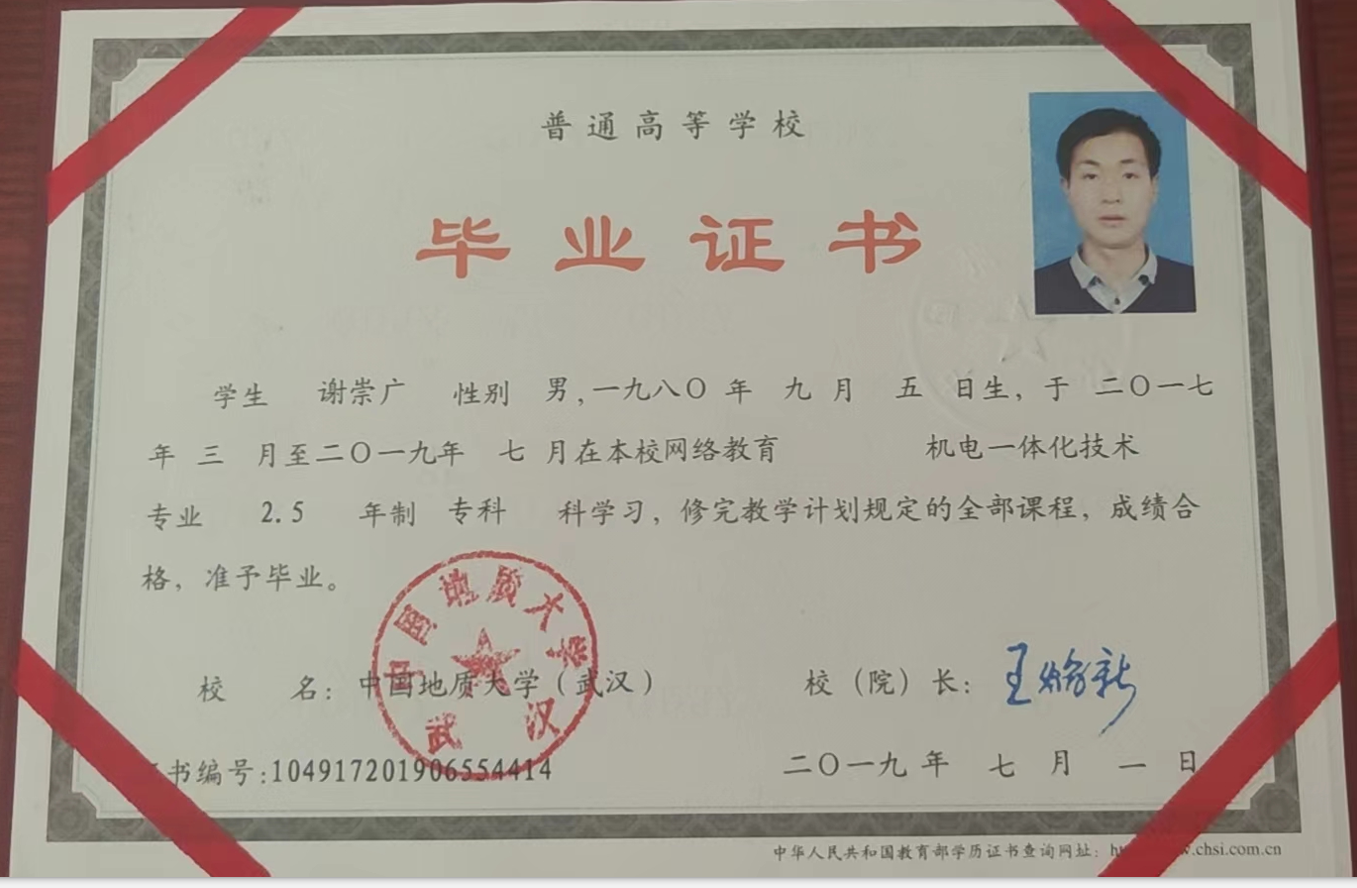 普通高等学校
毕业证书
学生 谢崇广 性别 男,一九八〇年 九月 五 日生,于 二〇一七
年 三 月至二〇一九年 七 月在本校网络教育 机电一体化技术
专业 2.5 年制 专科 科学习,修完教学计划规定的全部课程,成绩合
格,准予毕业。
中国地质大学
武汉
校 名:中国地质大学(武汉) 校(院)长:王焰新
书编号:104917201906554414 二〇一九年 七 月 一 日
中华人民共和国教育部学历证书查询网址: .chsi.com.cn